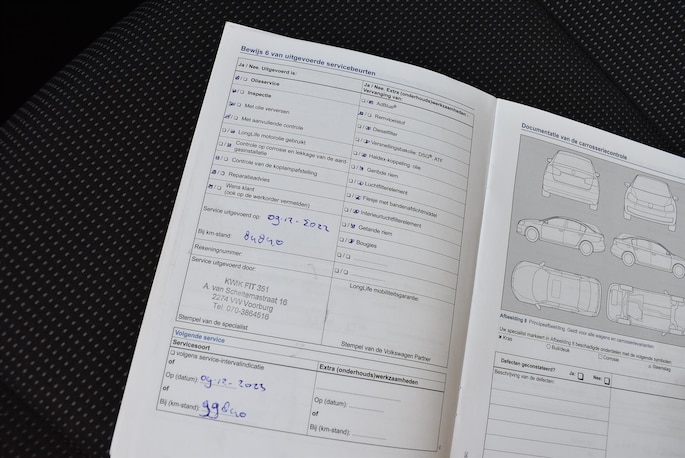 Bewijs 6 van uitgevoerde servicebeurten
Ja / Nee: Uitgevoerd is:
Olieservice
Inspectie
Met olie verversen
Met aanvullende controle
LongLife motorolie gebruikt
Controle op corrosie en lekkage van de aard-
gasinstallatie
Controle van de koplampafstelling
Reparatieadvies
Wens klant
(ook op de werkorder vermelden)
Service uitgevoerd op: 09-12-2022
Bij km-stand: 84840
Rekeningnummer:
Service uitgevoerd door:
KWIK FIT 351
A. van Scheltemastraat 16
2274 VW Voorburg
Tel: 070-3864516
Stempel van de specialist
Ja / Nee: Extra (onderhouds)werkzaamheden -
Vervanging van:
AdBlue®
Remvloeistof
Dieselfilter
Versnellingsbakolie: DSG® ATF
Haldex-koppeling: olie
Geribde riem
Luchtfilterelement
Flesje met bandenafdichtmiddel
Interieurluchtfilterelement
Getande riem
Bougies
LongLife mobiliteitsgarantie:
Stempel van de Volkswagen Partner
Volgende service
Servicesoort
volgens service-intervalindicatie
of
Op (datum): 09-12-2023
of
Bij (km-stand): 99840
Extra (onderhouds)werkzaamheden
Op (datum):
of
Bij (km-stand):
Documentatie van de carrosseriecontrole
Afbeelding 6 Principeafbeelding. Geldt voor alle wagens en carrosserievarianten.
Uw specialist markeert in Afbeelding 6 beschadigde onderdelen met de volgende symbolen:
x Kras
o Buil/deuk
Corrosie
Steenslag
Defecten geconstateerd? Ja: Nee:
Beschrijving van de defecten: